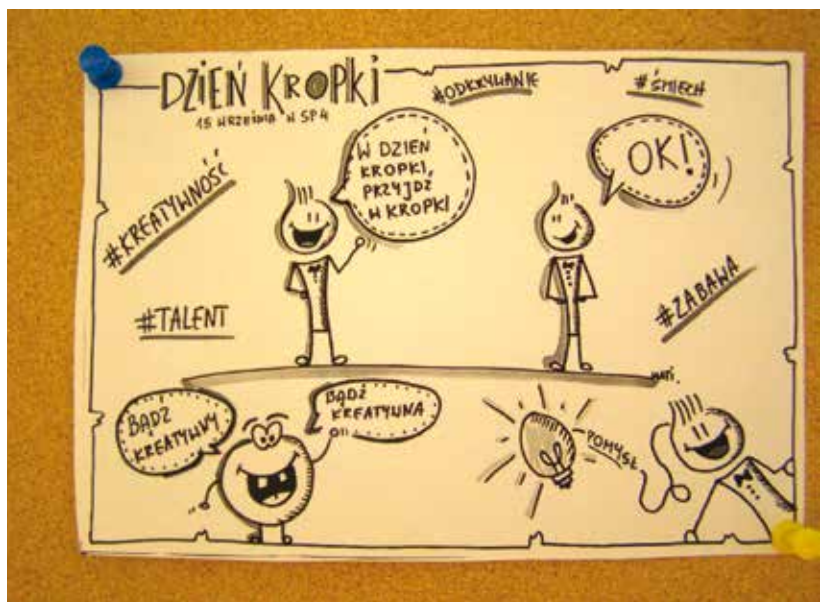 DZIEŃ KROPKI
15 WRZEŚNIA W SP4
#ODKRYWANIE
#ŚMIECH
#KREATYWNOŚĆ
W DZIEŃ
KROPKI,
PRZYJDŹ
W KROPKI
OK!
#TALENT
#ZABAWA
BĄDŹ
KREATYWNY
BĄDŹ
KREATYWNA
POMYSŁ